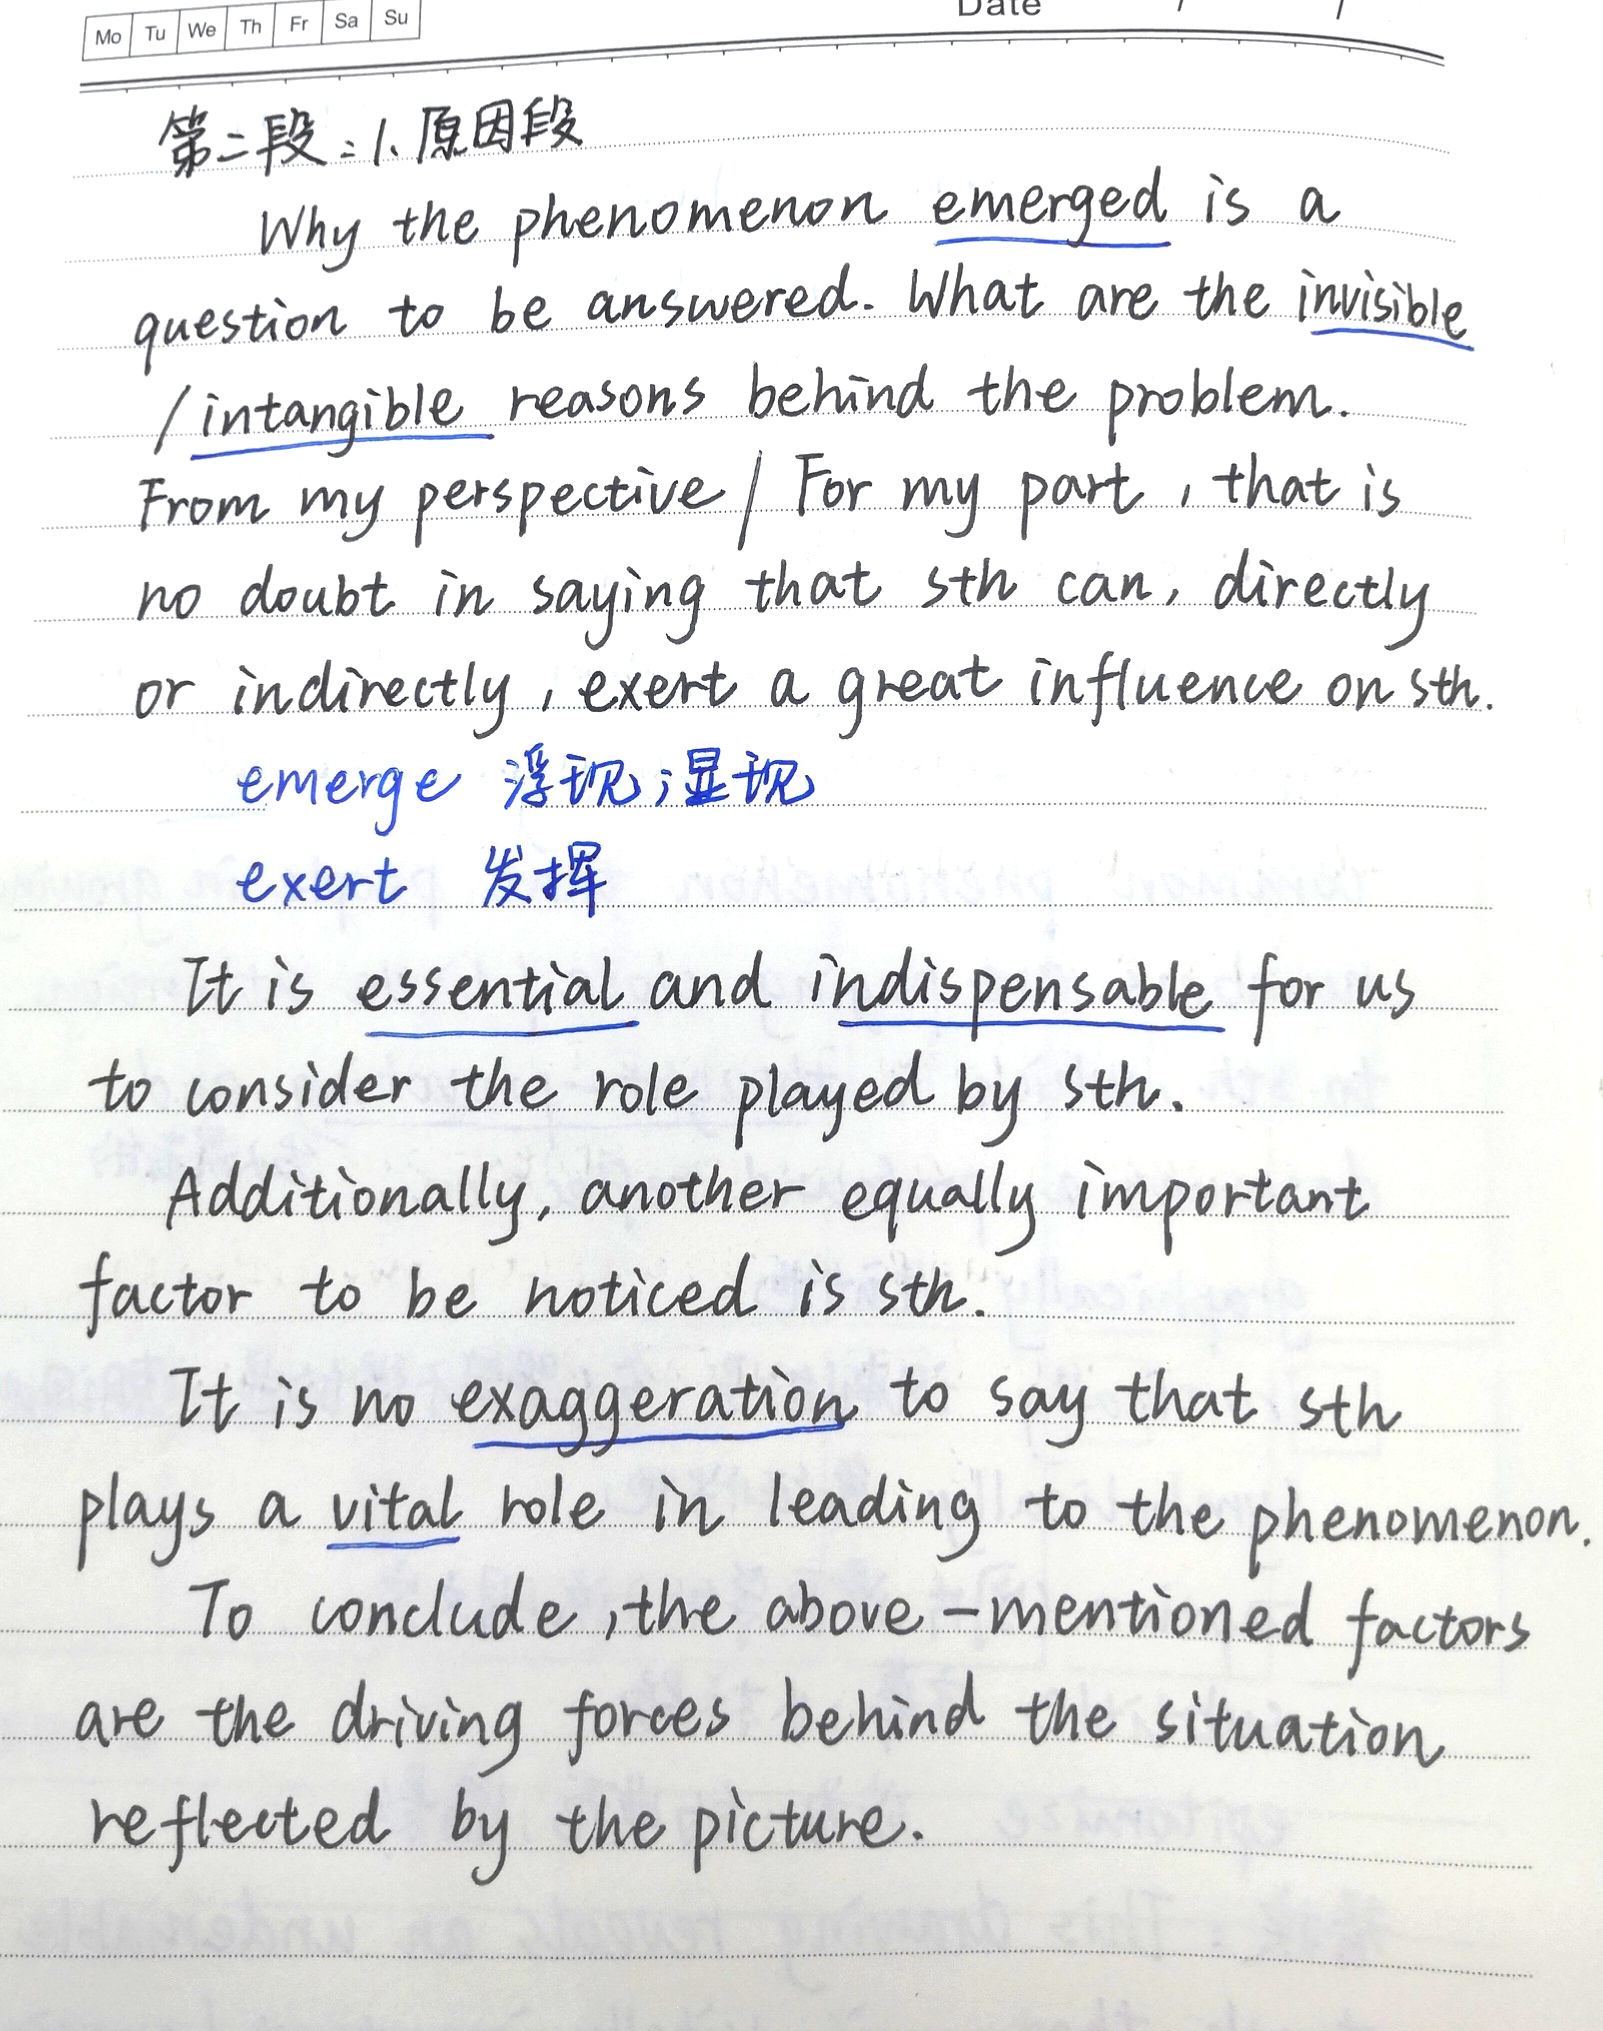 Mo Tu We Th Fr Sa Su
Date / /
第二段:1.原因段
Why the phenomenon emerged is a
question to be answered. What are the invisible
/intangible reasons behind the problem.
From my perspective / For my part, that is
no doubt in saying that sth can, directly
or indirectly, exert a great influence on sth.
emerge 浮现;显现
exert 发挥
It is essential and indispensable for us
to consider the role played by sth.
Additionally, another equally important
factor to be noticed is sth.
It is no exaggeration to say that sth
plays a vital role in leading to the phenomenon.
To conclude, the above-mentioned factors
are the driving forces behind the situation
reflected by the picture.